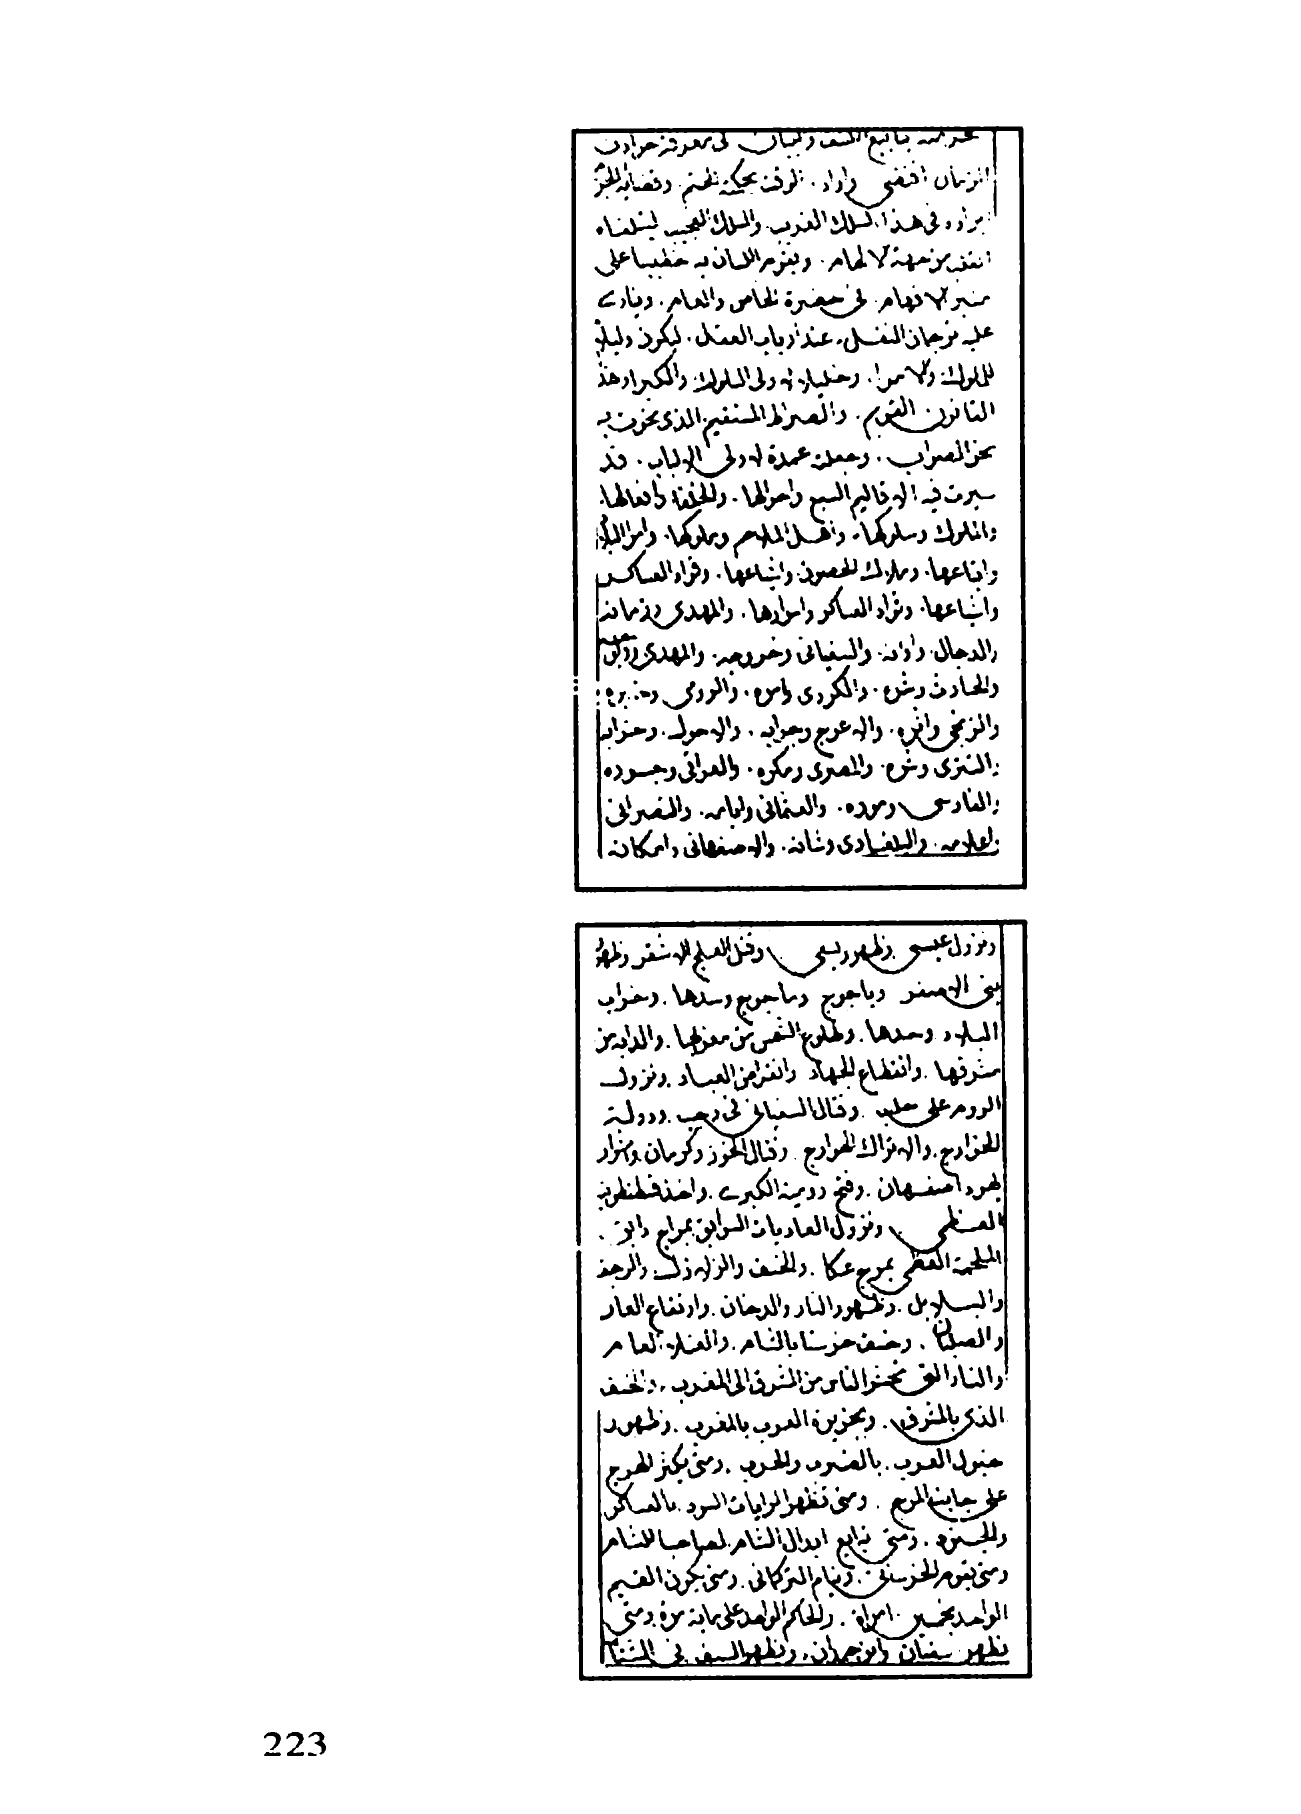 بنابيع الكشف والبيان في معرفة حوادث
الزمان اقتضى واراد الوقت بحكمة الختم وقضايه الجزم
ابراده في هذا السلك الغريب والسلك العجيب ليتلقاه
من جهة الالهام ويقوم اللسان به خطيبا على
منبر الافهام في حضرة الخاص والعام وينادى
عليه ترجمان النقل عند ارباب العقل ليكون دليلا
للملوك والامرا وخليلا لاولى السلوك والكبرا وهذا
القانون القويم والصراط المستقيم الذي
نحو الصواب وجعلته عمدة لاولى الالباب قد
سيرت فيه الاقاليم السبع واحوالها والخلفا وافعالها
والملوك وسلوكها واهل الملاحم وملوكها وامرا البلاد
واتباعها وملوك الحصون واشياعها وقواد العساكر
واشياعها وقواد العساكر واسرارها والمهدى وزمانه
والدجال واوانه والسفيانى وخروجه والمهدى
والحادث وشره والكردى وامره والرومى
والزنجى والاعرج وجوابه والاحول وخرابه
وشره والمصرى ومكره والعراقى وجسوده
والفارسى والعثمانى ولباسه والنصرانى
واعلامه وشانه والاصفهانى وامكانه
ونزول عيسى وظهور يسعى وقتل العلج الاشقر وظهور
بنى الاصفر وياجوج وماجوج وسدها وخراب
البلاد وحدها وطلوع الشمس من مغربها والدابة من
مشرقها وانقطاع الجهاد وانقراض العباد ونزول
الروم على حلب وقتال السفيانى فى رجب ودولة
الخوارج والاتراك الهوارج وقتال الخوز وكرمان
يهود اصفهان وفتح رومية الكبرى واخذ قسطنطينية
العظمى ونزول العاديات السوابق بمراج دابق
الملحمة العظمى بمرج عكا والخسف والزلازل والرجف
والبلابل وظهور النار والدخان وارتفاع العار
والصلبان وخسف حرستا بالشام والغلا العام
والنار التى تحشر الناس من المشرق الى المغرب والخسف
الذى بالمشرق العرب بالمغرب وظهور
خيول العرب بالضرب والحرب ومتى يكثر الهرج
على جانب المرج ومتى تظهر الرايات السود بالعساكر
والجنود ومتى تبايع ابدال الشام لصاحب الشام
ومتى يقوم وقيام التركمانى ومتى يكون القيم
الواحد بخمسين امراة والحاكم الواحد على ماية مرة ومتى
تظهر ويظهر السيف فى الشتا
223